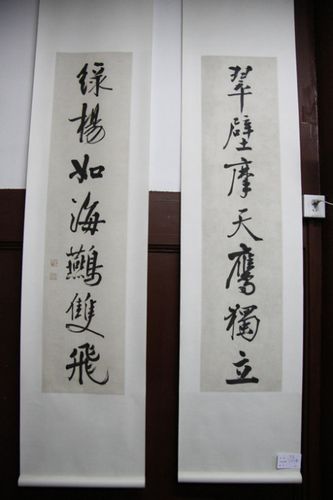 翠壁摩天鹰獨立
綠楊如海鷰雙飛